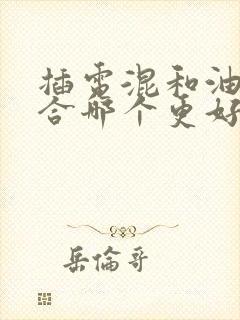 插电混和油
合哪个更好
岳倫哥